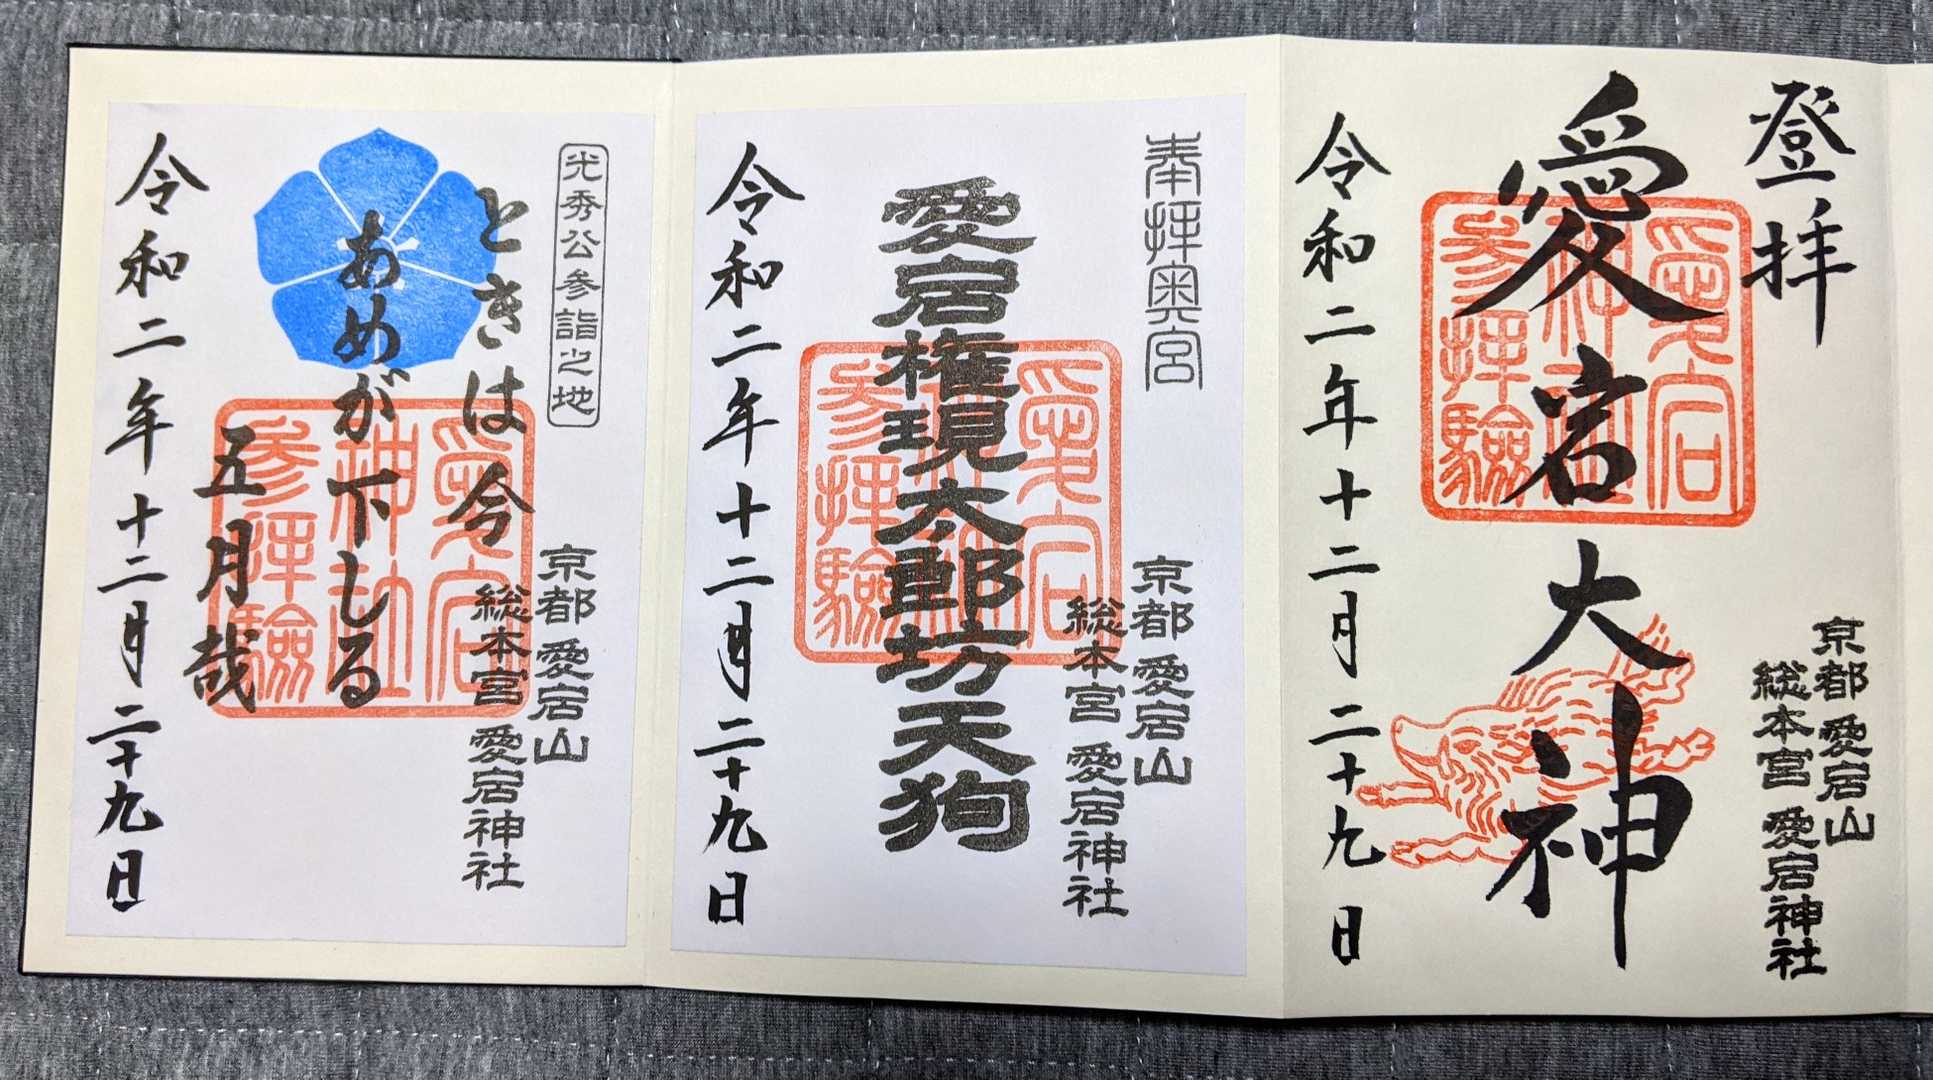 登拝
愛宕大神
愛宕
神社
参拝験
京都 愛宕山
総本宮 愛宕神社
令和二年十二月二十九日
奉拝奥宮
愛宕権現太郎坊天狗
愛宕
神社
参拝験
京都 愛宕山
総本宮 愛宕神社
令和二年十二月二十九日
光秀公参詣之地
ときは今
あめが下しる
五月哉
愛宕
神社
参拝験
京都 愛宕山
総本宮 愛宕神社
令和二年十二月二十九日